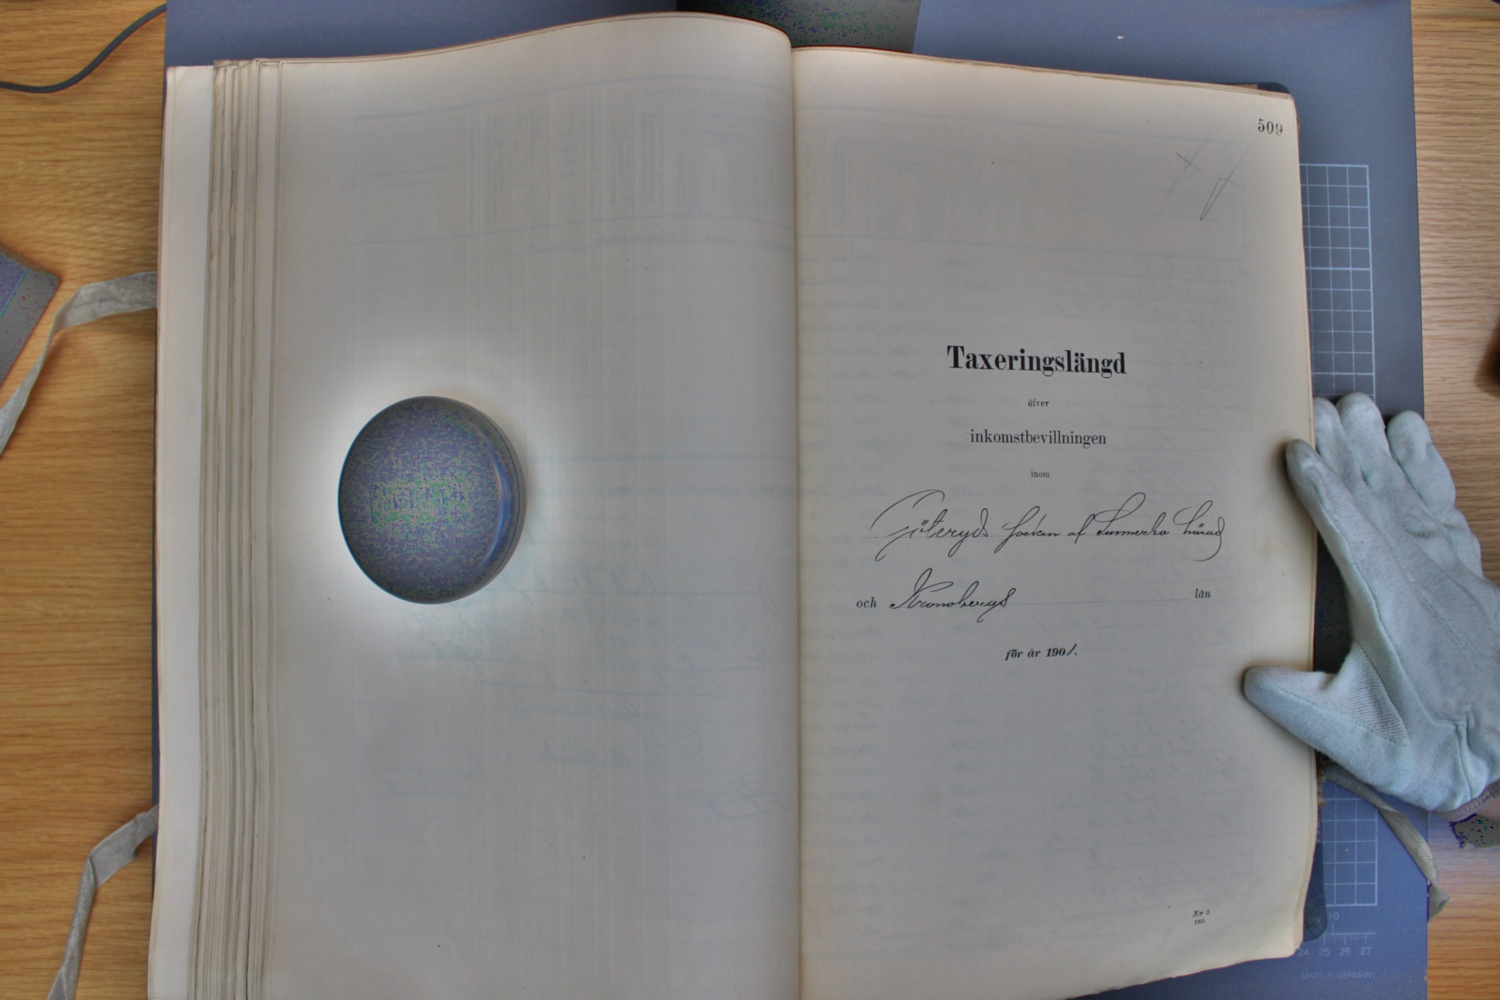 509
Taxeringslängd
öfver
inkomstbevillningen
inom
Göteryds socken af Sunnerbo härad
och Kronobergs län
för år 1901.
Nr 5
1901
10
24 25 26 27
MADE IN GERMANY